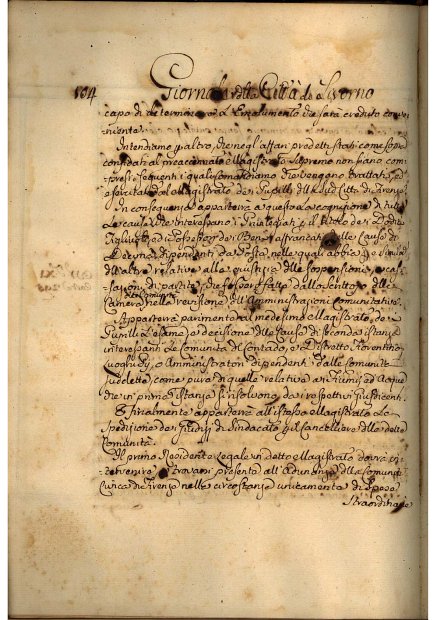 104 Giornale della Città di Livorno
capo di determinare l'Emolumento che sarà creduto conve
niente.
Intendiamo per altro, che negl'affari predetti stati come sopra
conferiti al preaccennato Magistrato Supremo non siano com
presi i seguenti quali comandiamo che vengano trattati, ed
esercitati dal Magistrato de Pupilli della sua Città di Firenze
In conseguenza apparterrà a questo la cognizione di tutte
le cause che interessano i Privilegiati per il titolo de' Dodici
Figli, ed i Possessori di Beni affrancati, delle Cause di
Decima dipendenti da Posta, nelle quali abbia
dell'altre relative alla giustizia delle sospensioni, e cas
sazioni di partite, che fossero fatte dalla Scrittojo della
Camera nella revisione dell'Amministrazioni comunitative.
Apparterrà parimente al medesimo Magistrato de
Pupilli l'esame, e decisione delle Cause di seconda istanza
interessanti le Comunità del Contado, e Distretto Fiorentino
Luoghi Pij, o Amministrazioni dipendenti dalle Comunità
suddette, come pure di quelle relative a i Fiumi ed Acque
che in prima istanza si risolvono da i respettivi Giusdicenti.
E finalmente apparterrà all'istesso Magistrato la
Spedizione de i Giudizj di Sindacato per il Cancelliere delle dette
Comunità.
Il primo Residente Legale in detto Magistrato dovrà in
tervenire, e trovarsi presente all'Adunanza della Comunità
Civica di Firenze nelle circostanze unicamente di Spese
Straordinarie